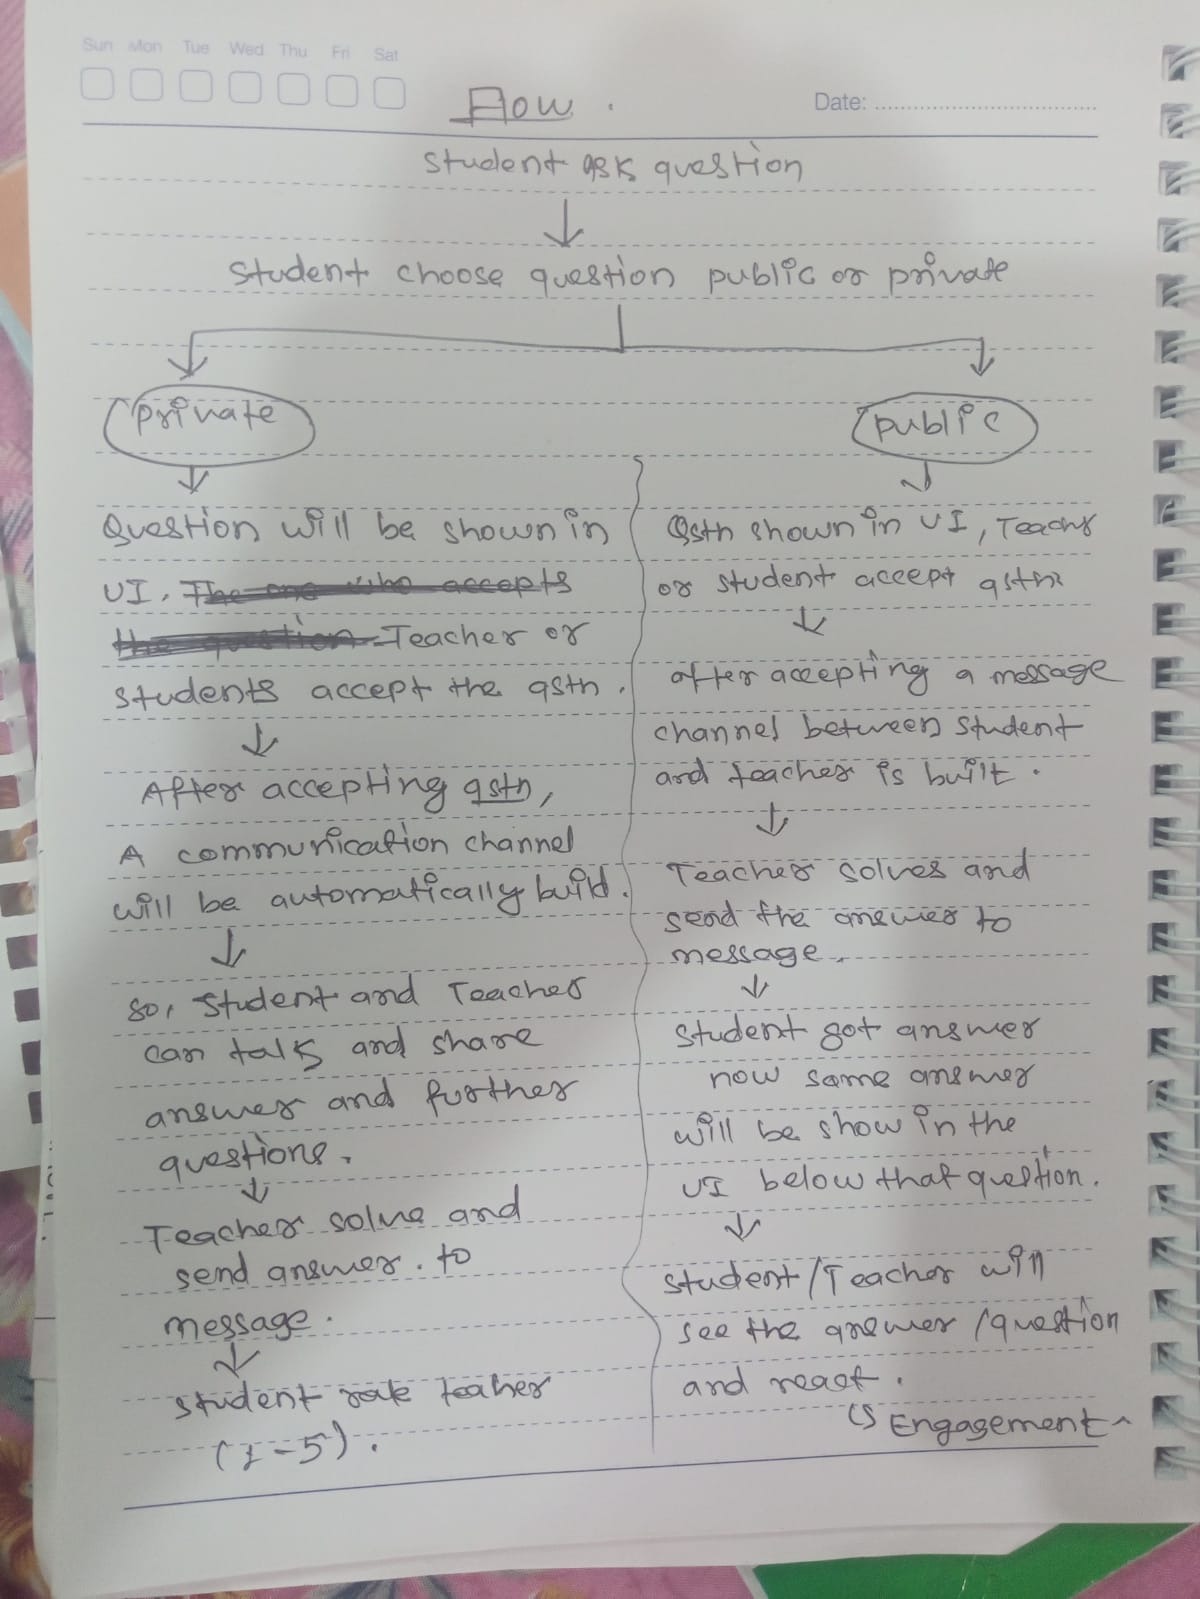 Sun Mon Tue Wed Thu Fri Sat
Flow.
Date:
Student ask question
Student choose question public or private
private
Question will be shown in
UI. The one who accepts
the question Teacher or
students accept the qstn.
After accepting qstn,
A communication channel
will be automatically build.
So, Student and Teacher
can talk and share
answer and further
questions.
Teacher solve and
send answer. to
message.
student rate teaher
(1-5).
public
Qstn shown in UI, Teachr
or student accept qstn
after accepting a message
channel between student
and teacher is built.
Teacher solves and
send the answer to
message.
student got answer
now same answer
will be show in the
UI below that question.
student/Teacher will
see the answer /question
and react.
Engagement